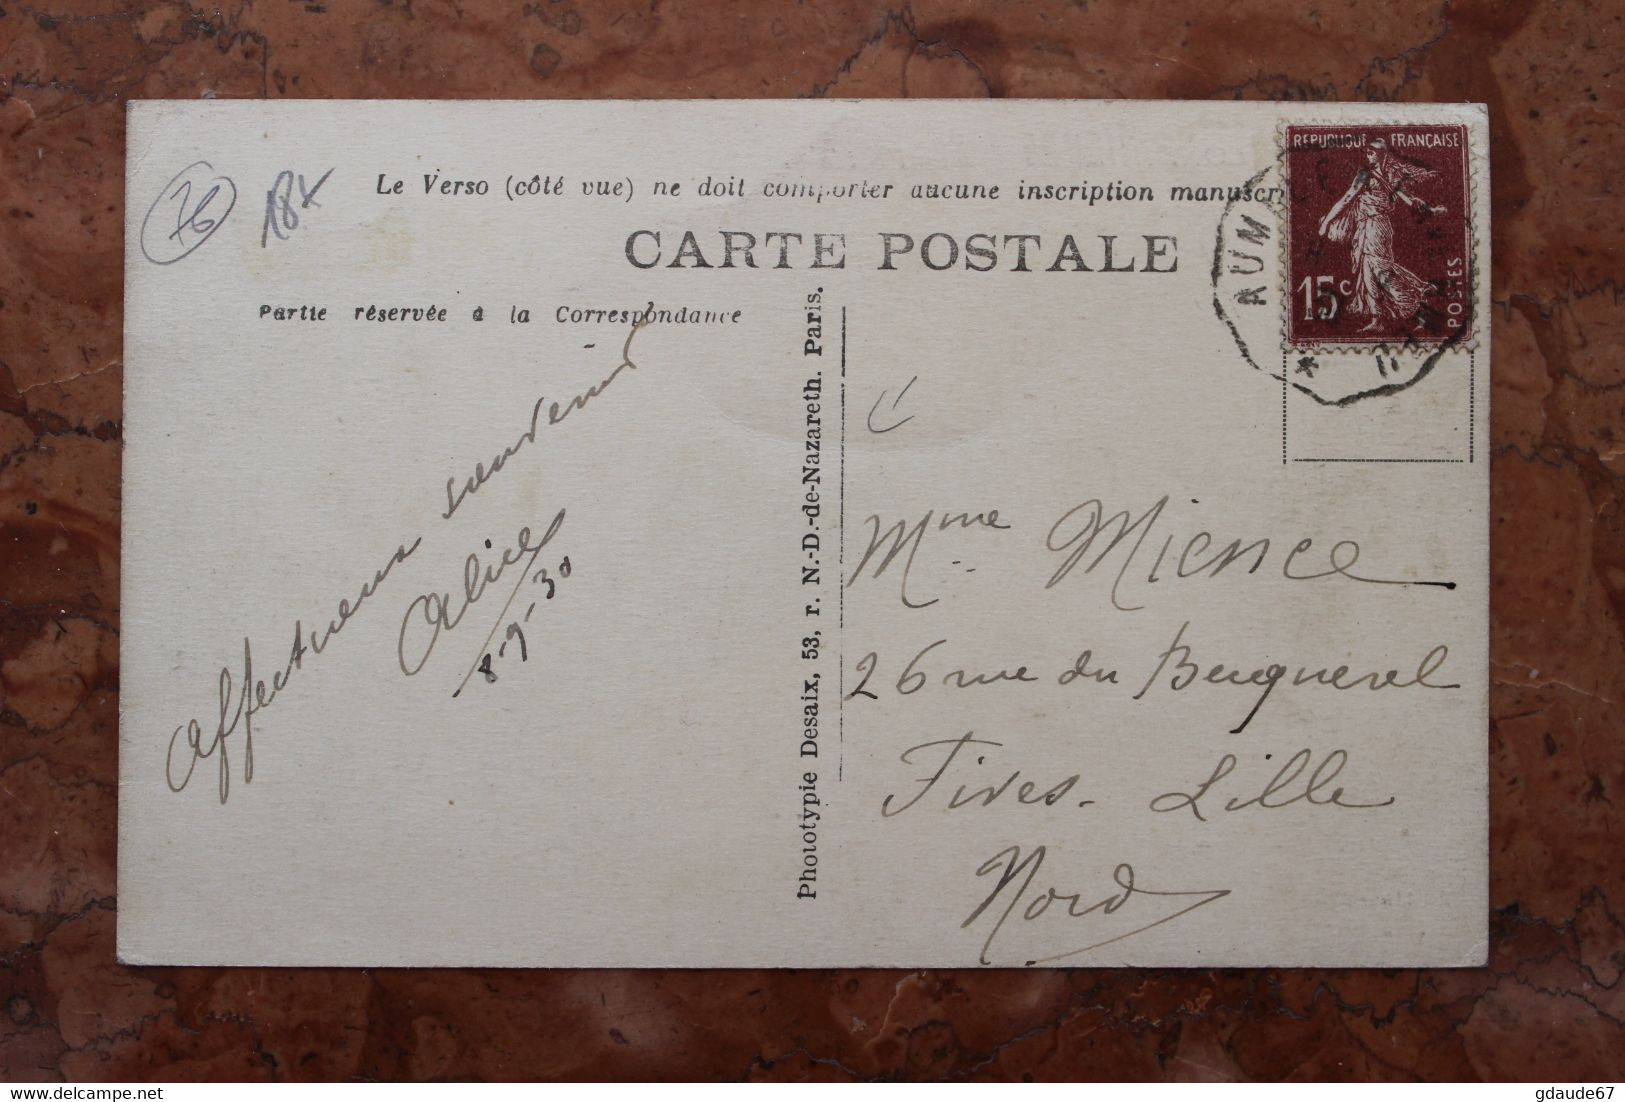 76
18x
Le Verso (côté vue) ne doit comporter aucune inscription manuscri
REPUBLIQUE FRANÇAISE
15c
POSTES
AUM
CARTE POSTALE
Partie réservée à la Correspondance
Affectueux souvenir
Alice
8-9-30
Phototypie Desaix, 53, r. N.-D.-de-Nazareth. Paris.
Mme Mience
26 rue du Becquerel
Fives-Lille
Nord
gdaude67